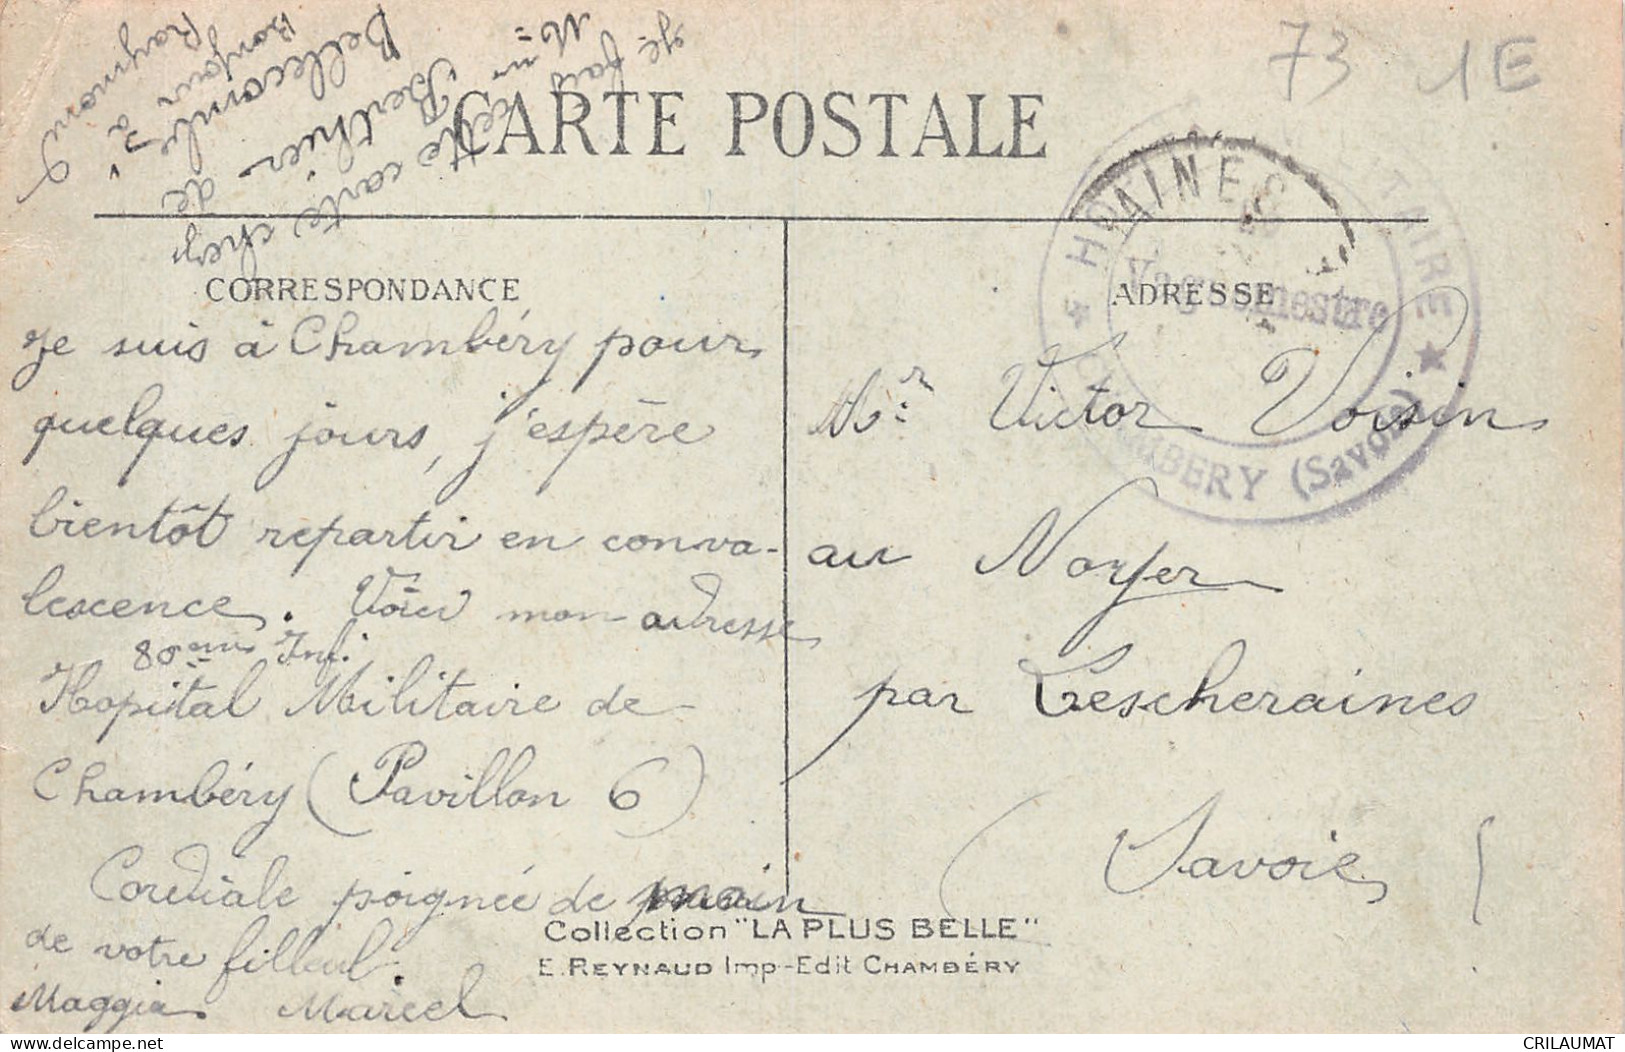 73 1E
Je fais cette carte chez
Mme Berthier de
Bellecombe
Bonjour à
Raymond
CARTE POSTALE
CORRESPONDANCE
ADRESSE
HOPITAL MILITAIRE ★
Vaguemestre
CHAMBERY (Savoie)
AINES
Je suis à Chambéry pour
quelques jours, j'espère
bientôt repartir en conva-
lescence. Voici mon adresse
80ème Inf.
Hopital Militaire de
Chambéry (Pavillon 6)
Cordiale poignée de main
de votre filleul.
Maggia Marcel
Mr Victor Voisin
au Noyer
par Lescheraines
(Savoie)
Collection "LA PLUS BELLE"
E. REYNAUD Imp-Edit CHAMBÉRY
delcampe.net
CRILAUMAT